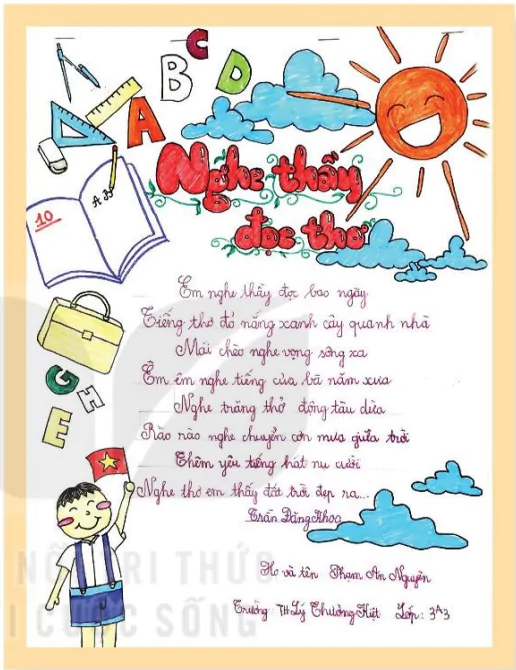 A B C D
Nghe thầy
đọc thơ
10
A B
Em nghe thầy đọc bao ngày
Tiếng thơ đỏ nắng xanh cây quanh nhà
Mái chèo nghe vọng sông xa
Êm êm nghe tiếng của bà năm xưa
Nghe trăng thở động tàu dừa
Rào rào nghe chuyển cơn mưa giữa trời
Thêm yêu tiếng hát nụ cười
Nghe thơ em thấy đất trời đẹp ra...
Trần Đăng Khoa
G H
E
Họ và tên Phạm An Nguyên
Trường: TH Lý Thường Kiệt Lớp: 3A3
TRI THỨC
CUỘC SỐNG